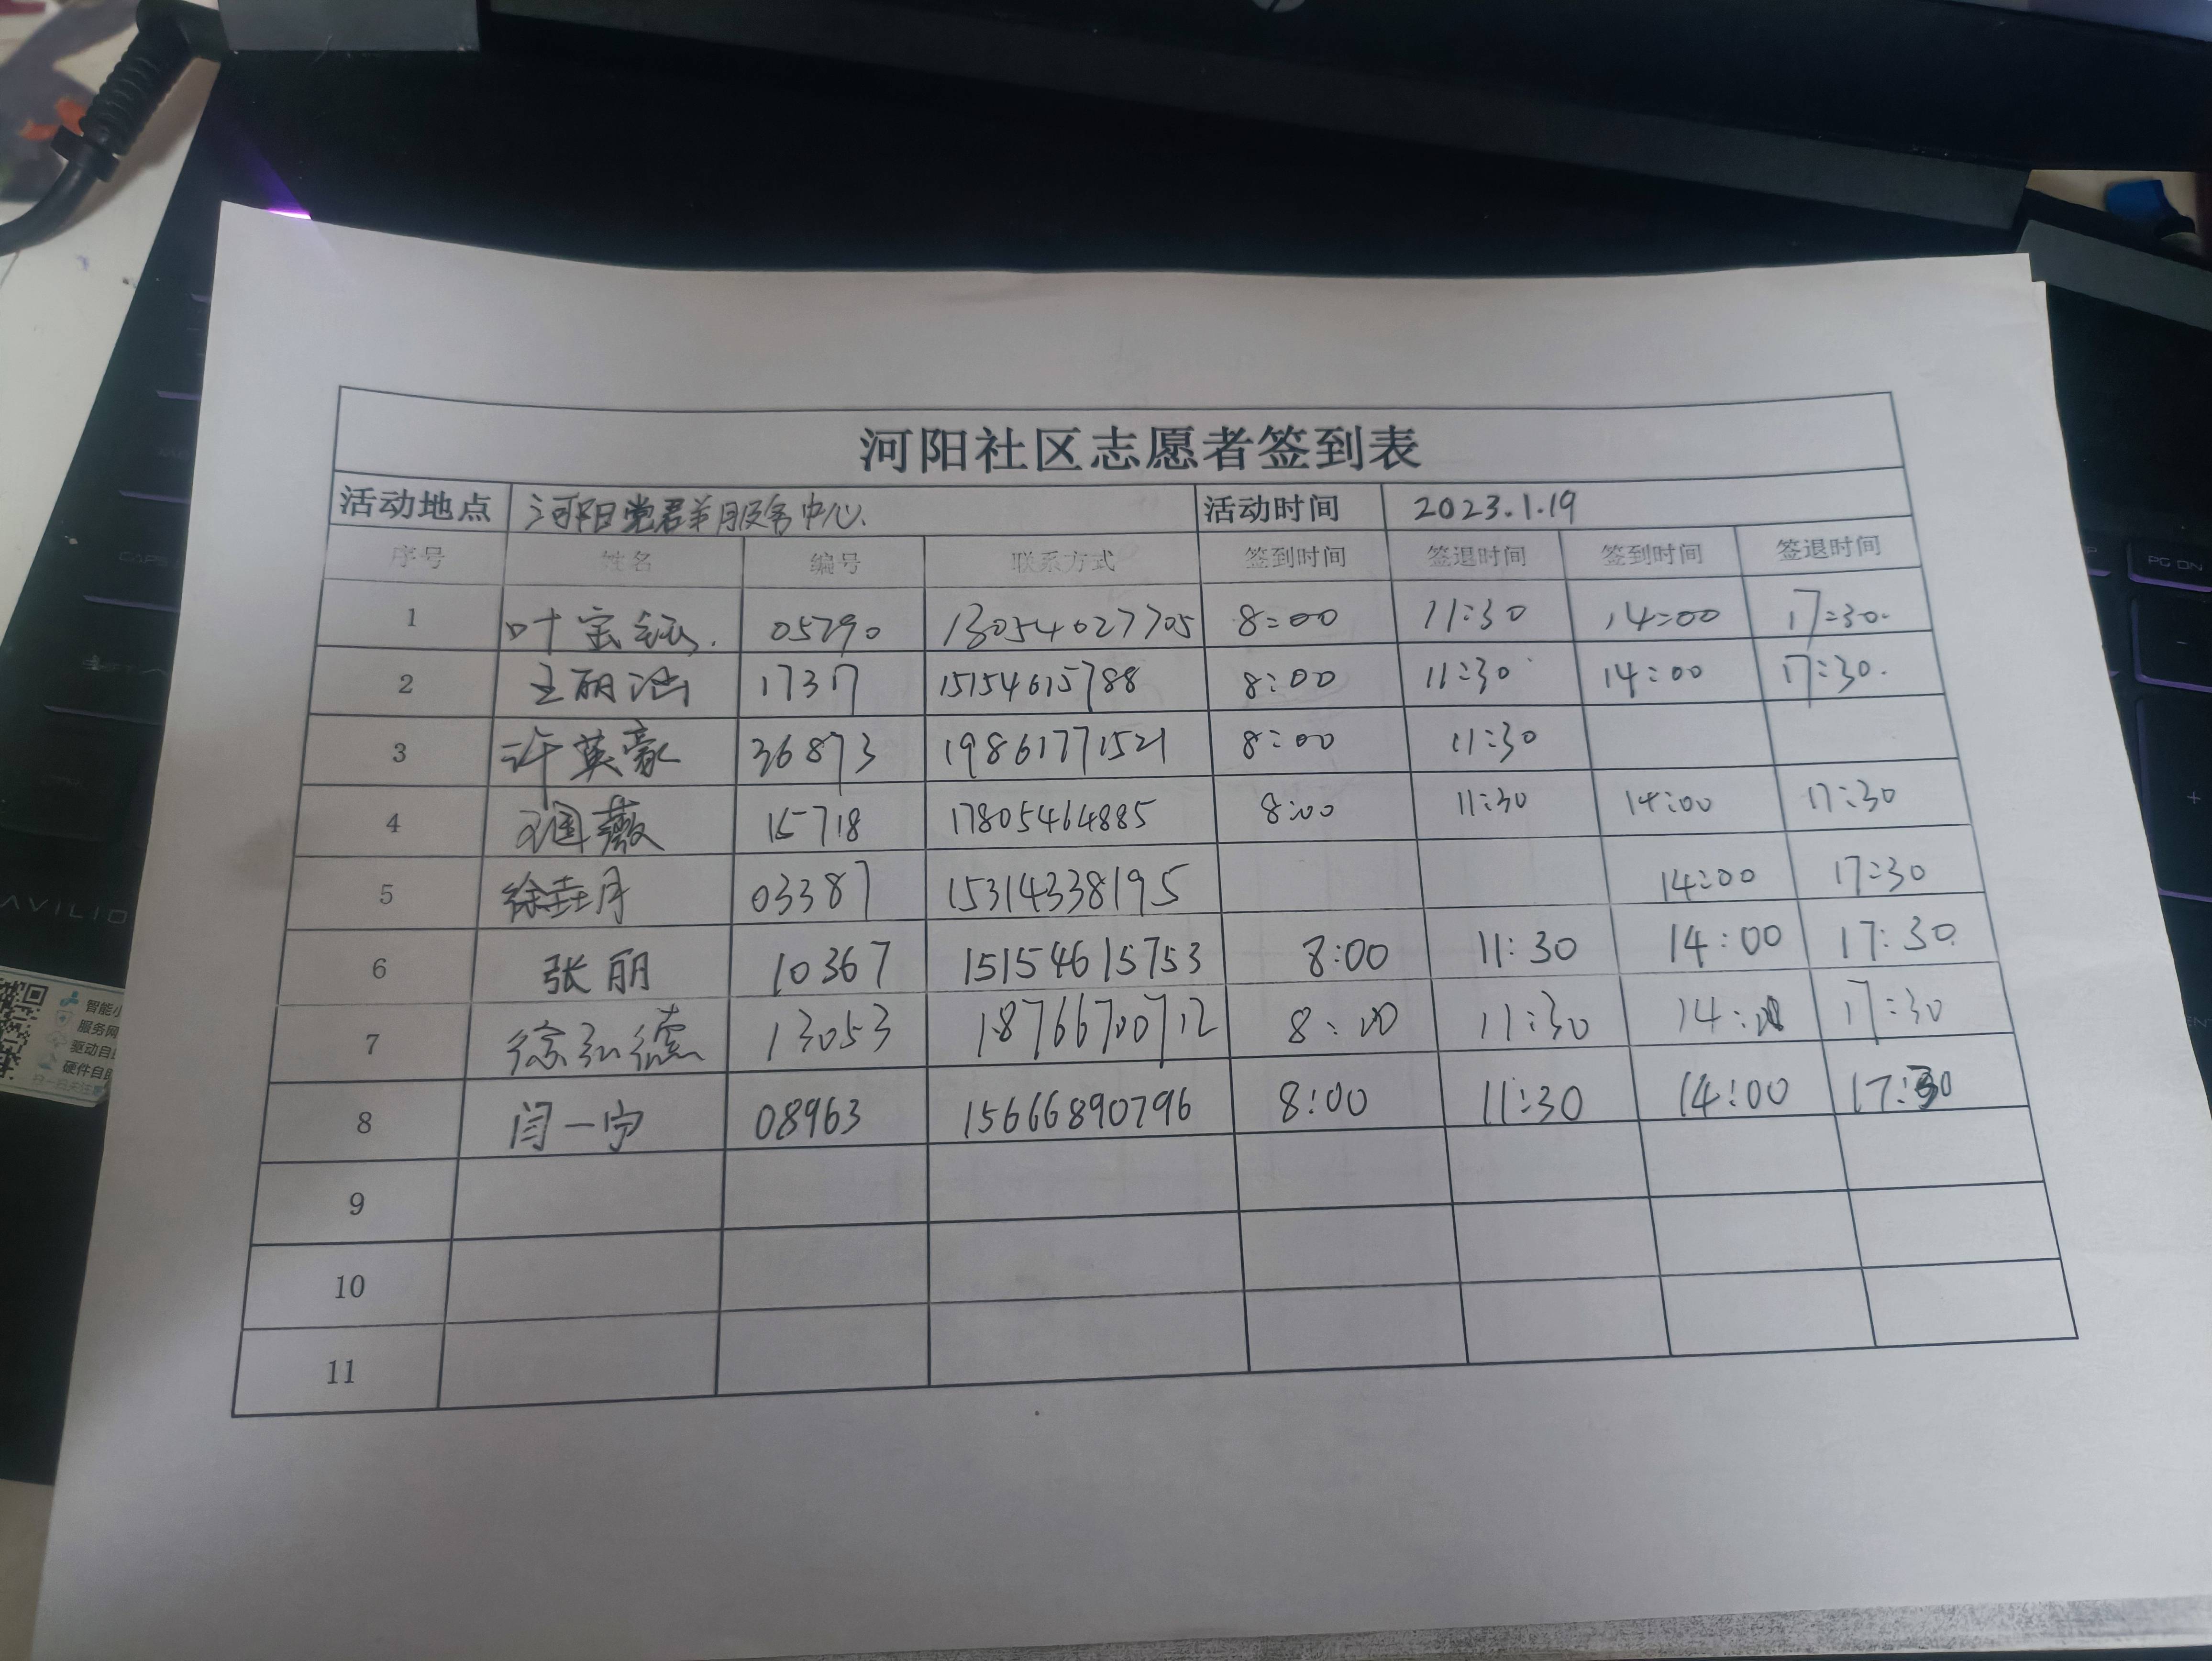 河阳社区志愿者签到表
活动地点 河阳党群服务中心 活动时间 2023.1.19
序号 姓名 编号 联系方式 签到时间 签退时间 签到时间 签退时间
1 叶宝钰 05790 13054027705 8:00 11:30 14:00 17:30
2 王丽涵 17317 15154615788 8:00 11:30 14:00 17:30
3 许英豪 36873 19861771521 8:00 11:30
4 薇 15718 17805464885 8:00 11:30 14:00 17:30
5 徐 月 03387 15314338195 14:00 17:30
6 张丽 10367 15154615753 8:00 11:30 14:00 17:30
7 徐弘德 13053 18766700712 8:00 11:30 14:00 17:30
8 闫一宁 08963 15666890796 8:00 11:30 14:00 17:30
9
10
11
智能
服务网
驱动自
硬件自助
扫一扫关注
AVILIO
PG DN